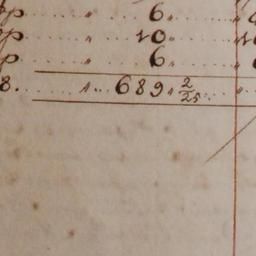 p " 6 "
p " 10 " 10
p " 6 "
8. " 689 " 2/25 "